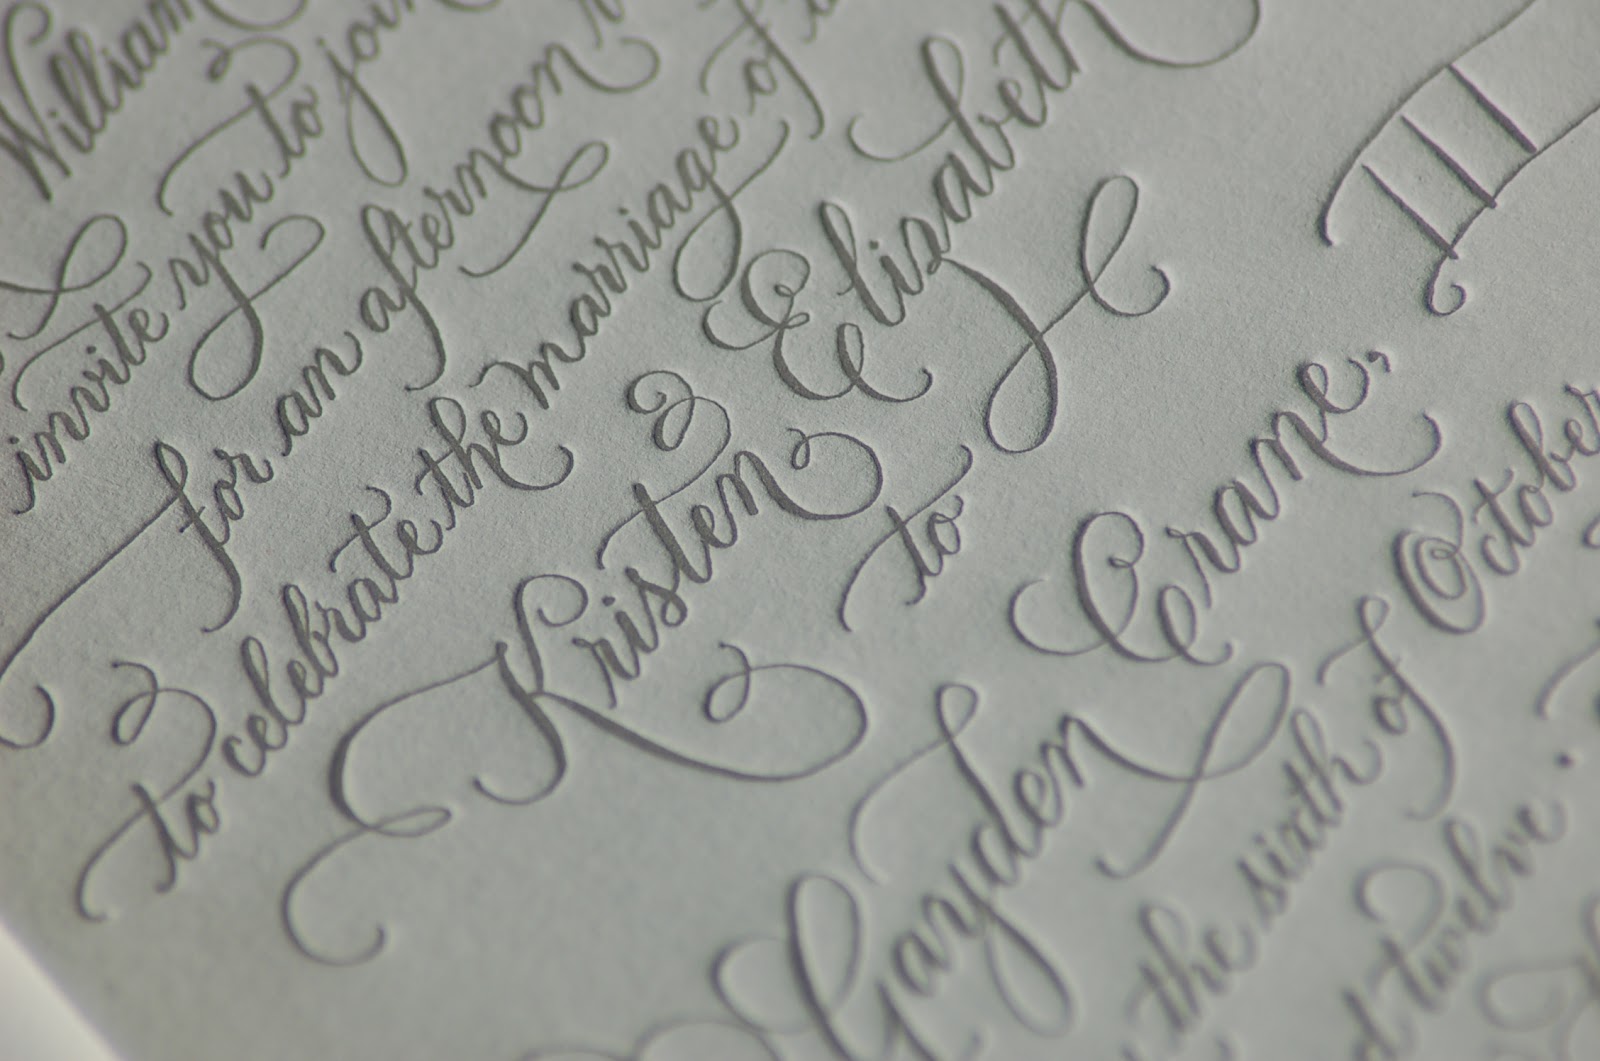 William
invite you to join
for an afternoon
to celebrate the marriage of
Kristen Elizabeth
to
Gayden Crane, III
the sixth of October
twelve